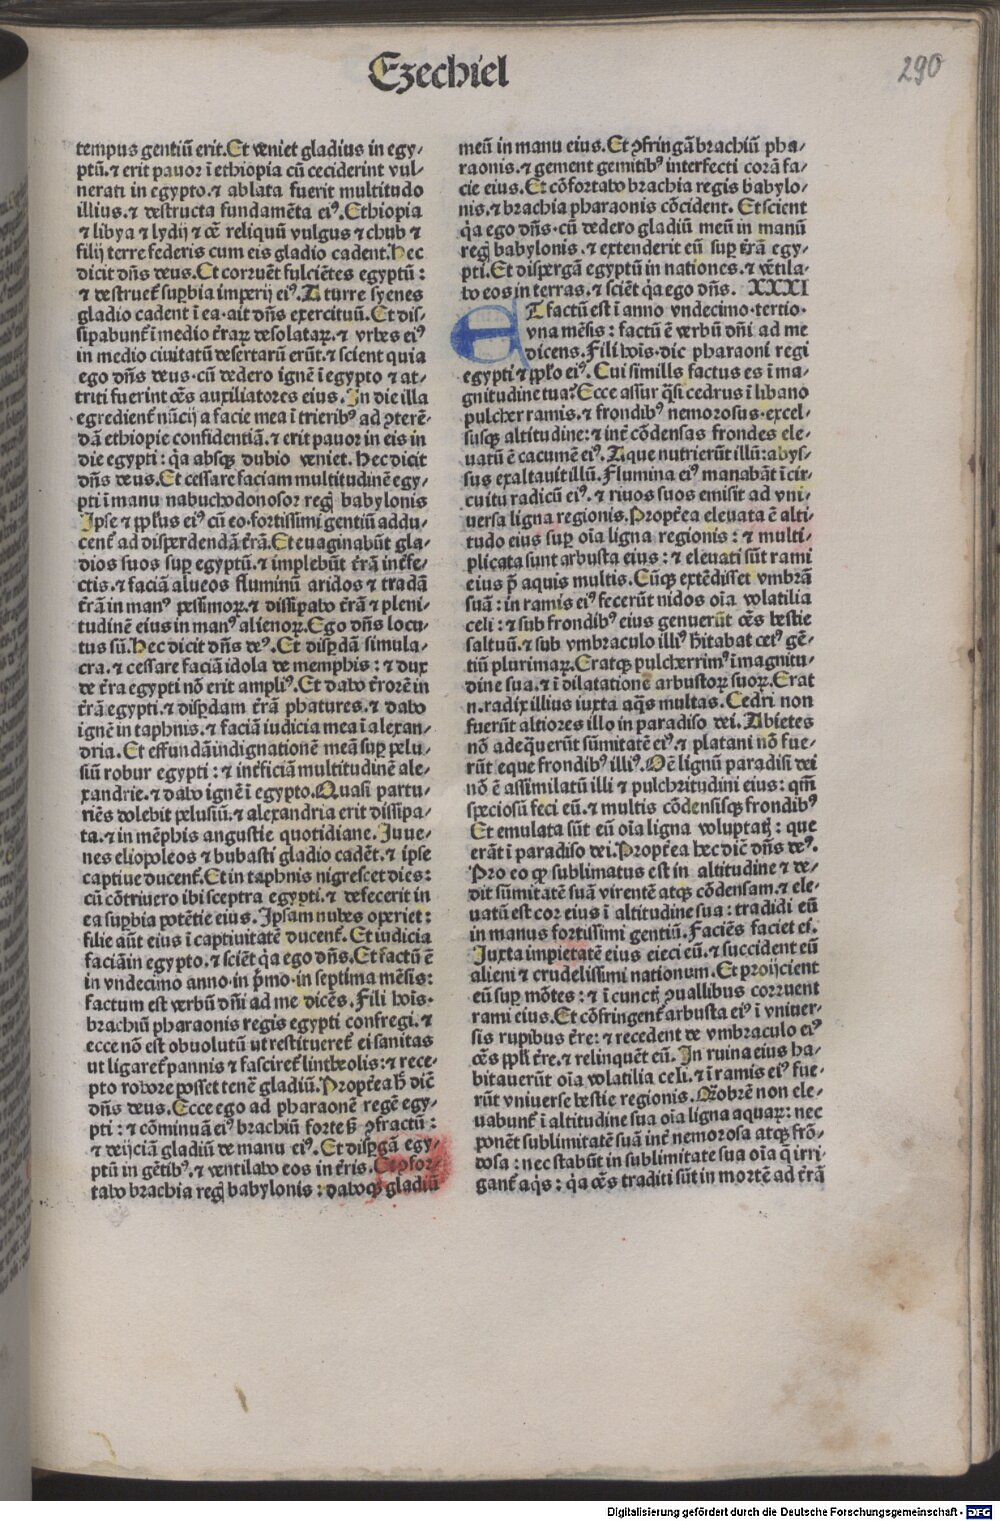 Ezechiel
290
tempus gentiū erit. Et veniet gladius in egy-
ptū. ⁊ erit pauor ī ethiopia cū ceciderint vul-
nerati in egypto. ⁊ ablata fuerit multitudo
illius. ⁊ destructa fundamēta eiꝰ. Ethiopia
⁊ libya ⁊ lydij ⁊ oē reliquū vulgus ⁊ chub ⁊
filij terre federis cum eis gladio cadent. Hec
dicit dn̄s deus. Et corruēt fulciētes egyptū:
⁊ destruet᷑ suꝑbia imperij eiꝰ. A turre syenes
gladio cadent ī ea. ait dn̄s exercituū. Et dis-
sipabunt᷑ ī medio t᷑raꝝ desolataꝝ. ⁊ vrbes eiꝰ
in medio ciuitatū desertarū erūt. ⁊ scient quia
ego dn̄s deus. cū dedero ignē ī egypto ⁊ at-
triti fuerint oēs auxiliatores eius. In die illa
egredient᷑ nūcij a facie mea ī trieribꝰ ad ꝯterē-
dā ethiopie confidentiā. ⁊ erit pauor in eis in
die egypti: q̄a absqꝫ dubio veniet. Hec dicit
dn̄s deus. Et cessare faciam multitudinē egy-
pti ī manu nabuchodonosor regꝭ babylonis
Ipse ⁊ ppl̄us eiꝰ cū eo. fortissimi gentiū addu-
cent᷑ ad disperdendā t᷑rā. Et euaginabūt gla-
dios suos suꝑ egyptū. ⁊ implebūt t᷑rā int᷑fe-
ctis. ⁊ faciā alueos fluminū aridos ⁊ tradā
t᷑rā in manꝰ pessimoꝝ. ⁊ dissipabo t᷑rā ⁊ pleni-
tudinē eius in manꝰ alienoꝝ. Ego dn̄s locu-
tus sū. Hec dicit dn̄s deꝰ. Et disꝑdā simula-
cra. ⁊ cessare faciā idola de memphis: ⁊ dux
de t᷑ra egypti nō erit ampliꝰ. Et dabo t᷑rorē in
t᷑rā egypti. ⁊ disꝑdam t᷑rā phatures. ⁊ dabo
ignē in taphnis. ⁊ faciā iudicia mea ī alexan-
dria. Et effundā indignationē meā suꝑ pelu-
siū robur egypti: ⁊ int᷑ficiā multitudinē ale-
xandrie. ⁊ dabo ignē ī egypto. Quasi partu-
riēs dolebit pelusiū. ⁊ alexandria erit dissipa-
ta. ⁊ in mēphis angustie quotidiane. Iuue-
nes eliopoleos ⁊ bubasti gladio cadēt. ⁊ ipse
captiue ducent᷑. Et in taphnis nigrescet dies:
cū cōtriuero ibi sceptra egypti. ⁊ defecerit in
ea suꝑbia potētie eius. Ipsam nubes operiet:
filie aūt eius ī captiuitatē ducent᷑. Et iudicia
faciā in egypto. ⁊ sciēt q̄a ego dn̄s. Et factū ē
in vndecimo anno. in p̄mo. in septima mēsis:
factum est verbū dn̄i ad me dicēs. Fili hoīs.
brachiū pharaonis regis egypti confregi. ⁊
ecce nō est obuolutū ut restitueret᷑ ei sanitas
ut ligaret᷑ pannis ⁊ fasciret᷑ lintheolis: ⁊ rece-
pto robore posset tenē gladiū. Propt᷑ea h̄ dic̄
dn̄s deus. Ecce ego ad pharaonē regē egy-
pti: ⁊ cōminuā eiꝰ brachiū forte sꝫ ꝯfractū:
⁊ deijciā gladiū de manu eiꝰ. Et disꝑgā egy-
ptū in gētibꝰ. ⁊ ventilabo eos in t᷑ris. Et ꝯfor-
tabo brachia regꝭ babylonis: daboqꝫ gladiū
meū in manu eius. Et ꝯfringā brachiū pha-
raonis. ⁊ gement gemitibꝰ interfecti corā fa-
cie eius. Et cōfortabo brachia regis babylo-
nis. ⁊ brachia pharaonis cōcident. Et scient
q̄a ego dn̄s. cū dedero gladiū meū in manū
regꝭ babylonis. ⁊ extenderit eū suꝑ t᷑rā egy-
pti. Et dispergā egyptū in nationes. ⁊ vētila-
bo eos in terras. ⁊ sciēt q̄a ego dn̄s. XXXI
ET factū est ī anno vndecimo. tertio.
vna mēsis: factū ē verbū dn̄i ad me
dicens. Fili hoīs. dic pharaoni regi
egypti ⁊ ppl̄o eiꝰ. Cui similis factus es ī ma-
gnitudine tua? Ecce assur q̄si cedrus ī libano
pulcher ramis. ⁊ frondibꝰ nemorosus. excel-
susqꝫ altitudine: ⁊ int᷑ cōdensas frondes ele-
uatū ē cacumē eiꝰ. Aque nutrierūt illū: abys-
sus exaltauit illū. Flumina eiꝰ manabāt ī cir-
cuitu radicū eiꝰ. ⁊ riuos suos emisit ad vni-
uersa ligna regionis. Propt᷑ea eleuata ē alti-
tudo eius suꝑ oīa ligna regionis: ⁊ multi-
plicata sunt arbusta eius: ⁊ eleuati sūt rami
eius p̄ aquis multis. Cūqꝫ extēdisset vmbrā
suā: in ramis eiꝰ fecerūt nidos oīa volatilia
celi: ⁊ sub frondibꝰ eius genuerūt oēs bestie
saltuū. ⁊ sub vmbraculo illiꝰ h̄itabat cetꝰ gē-
tiū plurimaꝝ. Eratqꝫ pulcherrimꝰ ī magnitu-
dine sua. ⁊ ī dilatatione arbustoꝝ suoꝝ. Erat
n. radix illius iuxta aq̄s multas. Cedri non
fuerūt altiores illo in paradiso dei. Abietes
nō adeq̄uerūt sūmitatē eiꝰ. ⁊ platani nō fue-
rūt eque frondibꝰ illiꝰ. Oē lignū paradisi dei
nō ē assimilatū illi ⁊ pulchritudini eius: qm̄
speciosū feci eū. ⁊ multis cōdensisqꝫ frondibꝰ
Et emulata sūt eū oīa ligna voluptatꝭ: que
erāt ī paradiso dei. Propt᷑ea hec dic̄ dn̄s deꝰ.
Pro eo ꝙ sublimatus est in altitudine ⁊ de-
dit sūmitatē suā virentē atqꝫ cōdensam. ⁊ ele-
uatū est cor eius ī altitudine sua: tradidi eū
in manus fortissimi gentiū. Faciēs faciet ei.
Iuxta impietatē eius eieci eū. ⁊ succident eū
alieni ⁊ crudelissimi nationum. Et proijcient
eū suꝑ mōtes: ⁊ ī cunctꝭ ꝯuallibus corruent
rami eius. Et cōfringent᷑ arbusta eiꝰ ī vniuer-
sis rupibus t᷑re: ⁊ recedent de vmbraculo eiꝰ
oēs ppl̄i t᷑re. ⁊ relinquēt eū. In ruina eius ha-
bitauerūt oīa volatilia celi. ⁊ ī ramis eiꝰ fue-
rūt vniuerse bestie regionis. Qm̄obrē non ele-
uabunt᷑ ī altitudine sua oīa ligna aquaꝝ: nec
ponēt sublimitatē suā int᷑ nemorosa atqꝫ frō-
dosa: nec stabūt in sublimitate sua oīa q̄ irri-
gant᷑ aq̄s: q̄a oēs traditi sūt in mortē ad t᷑rā
Digitalisierung gefördert durch die Deutsche Forschungsgemeinschaft - DFG